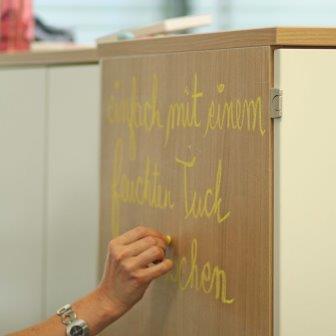 einfach mit einem
feuchten Tuch